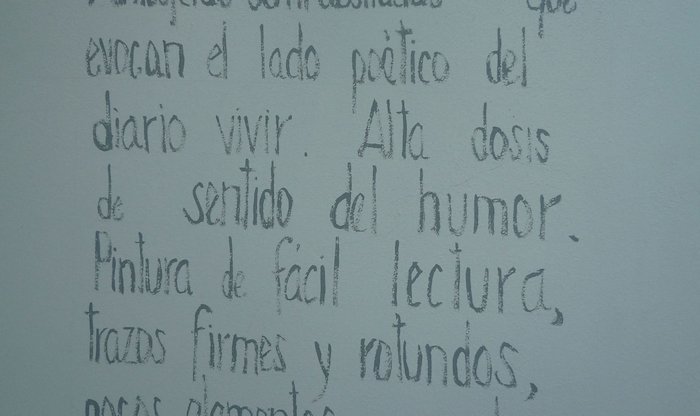 que
evocan el lado poético del
diario vivir. Alta dosis
de sentido del humor.
Pintura de fácil lectura,
trazos firmes y rotundos,
pocos elementos